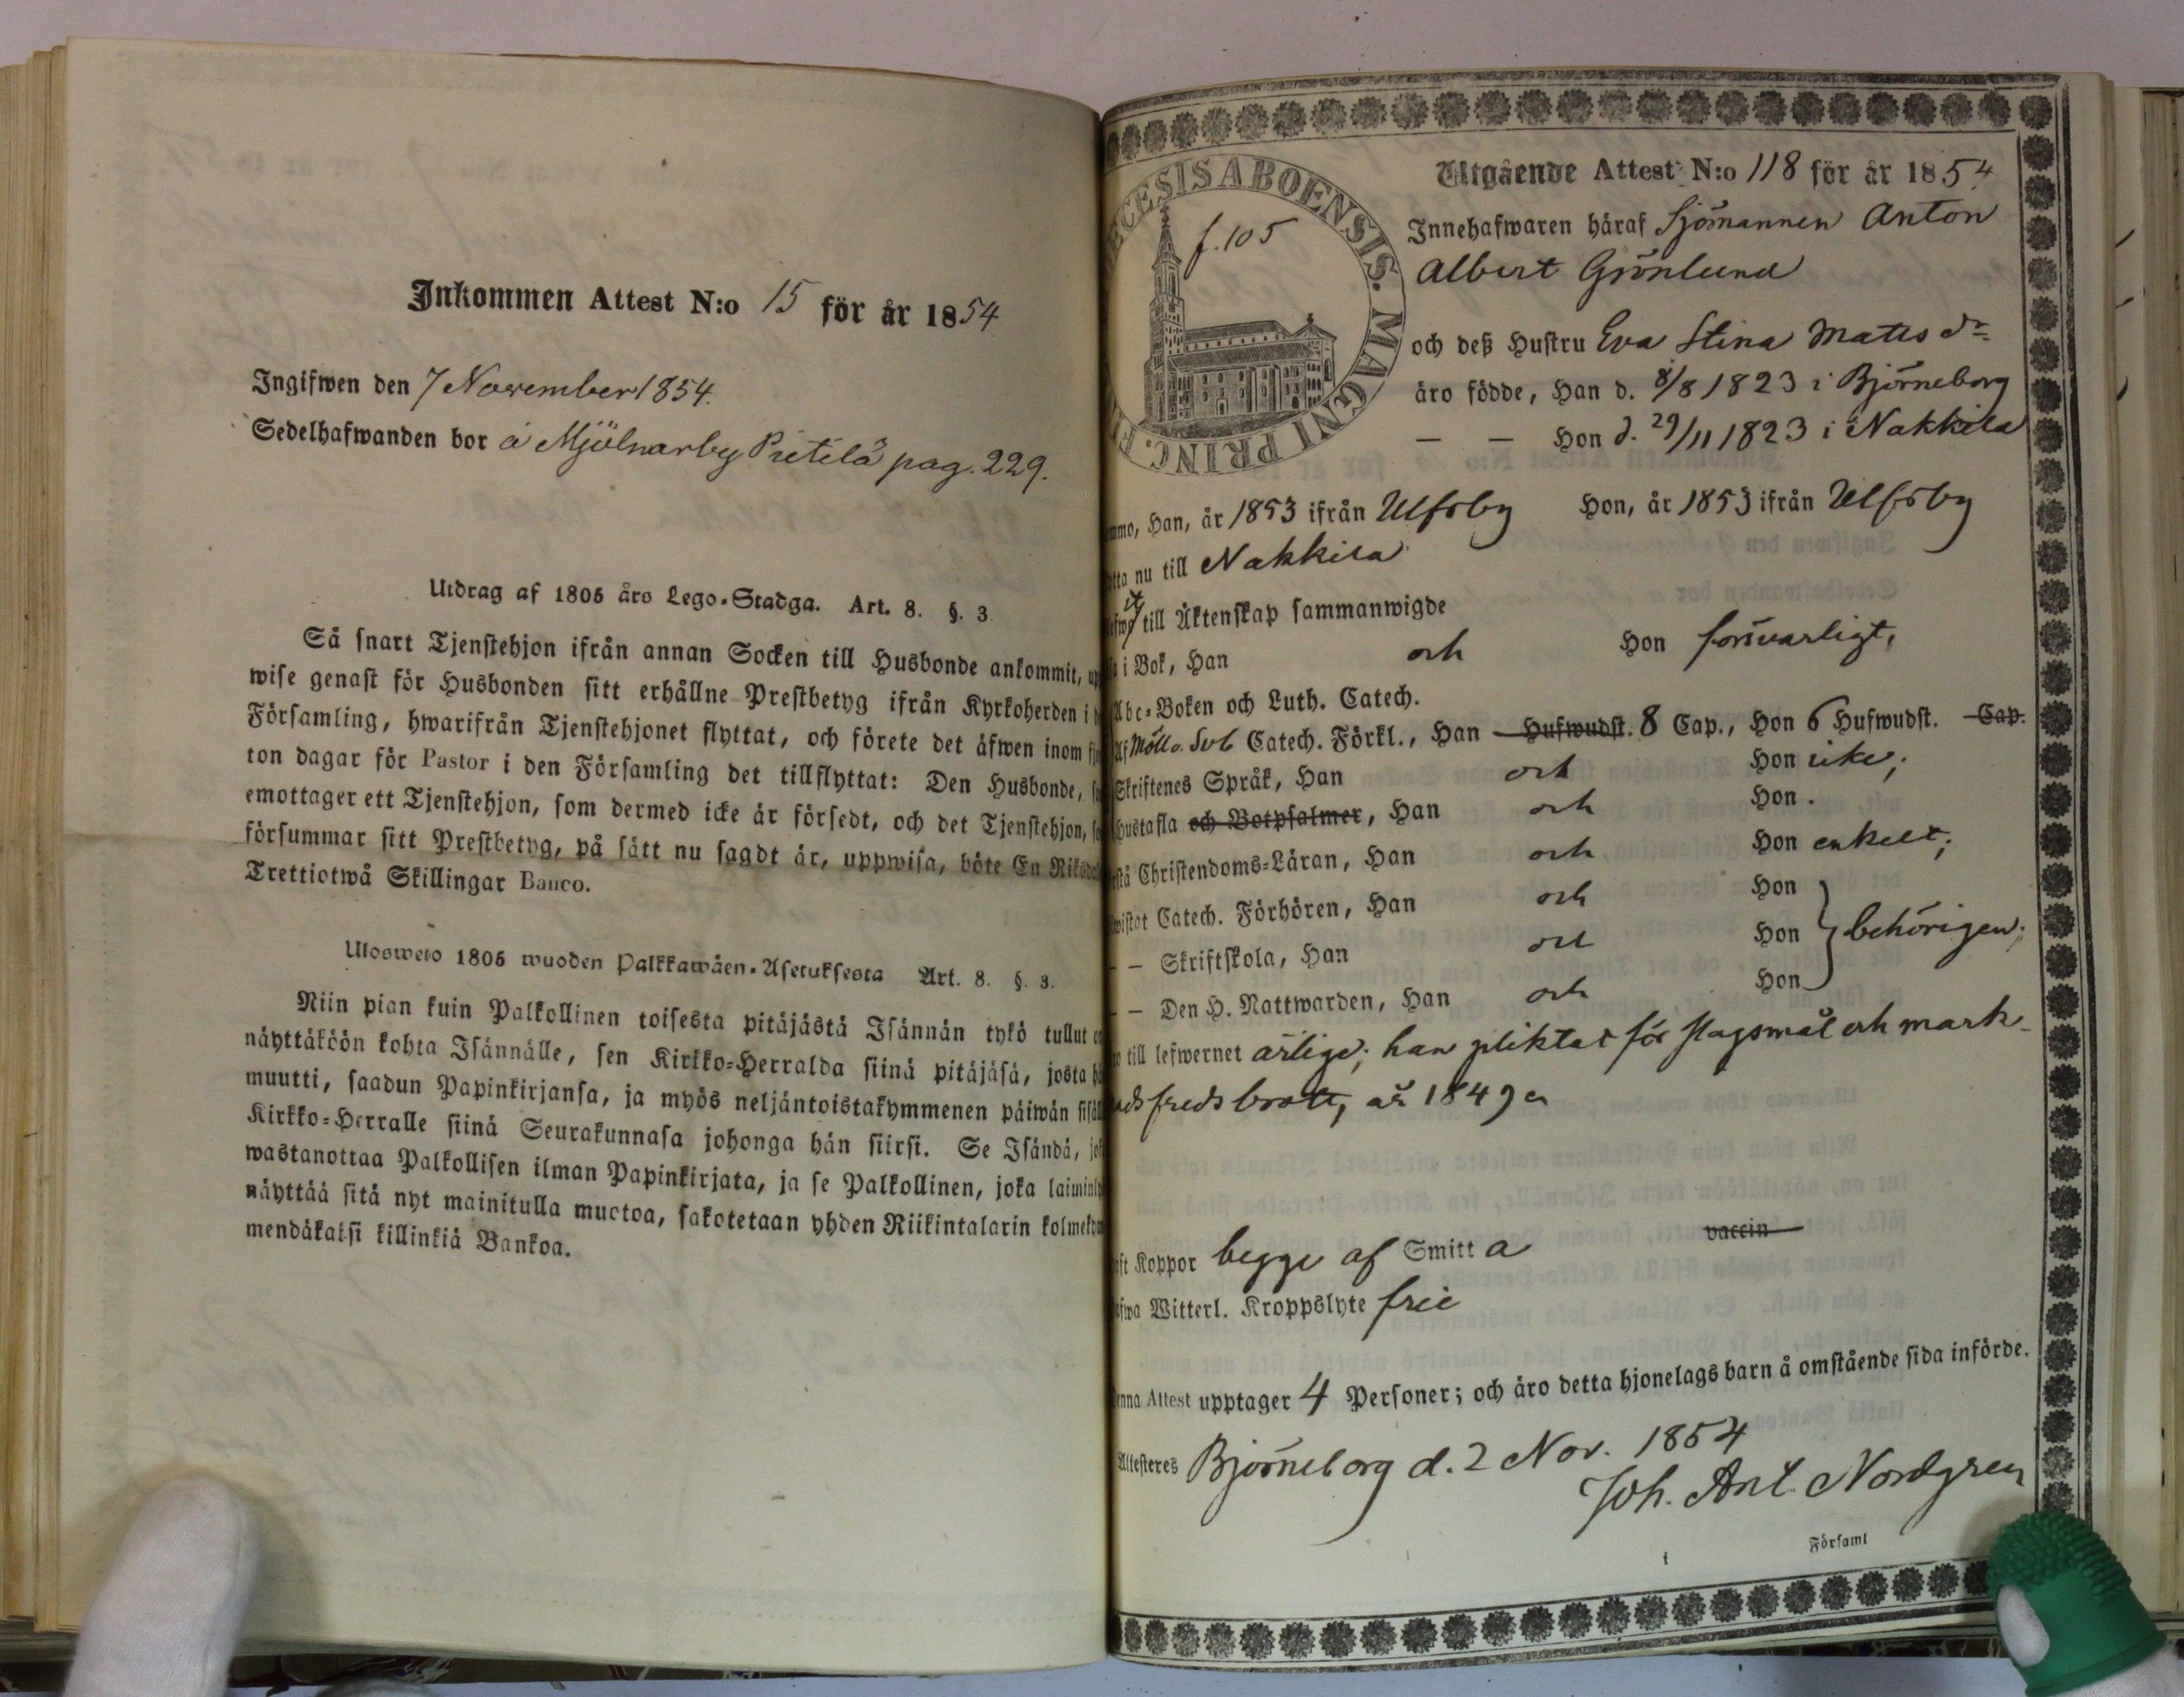 Inkommen Attest N:o 15 för år 1854
Ingifwen den 7 November 1854.
Sedelhafwanden bor å Mjölnarby Pietilä pag. 229.
Utdrag af 1805 års Lego-Stadga. Art. 8. §. 3
Så snart Tjenstehjon ifrån annan Socken till Husbonde ankommit, up
wise genast för Husbonden sitt erhållne Prestbetyg ifrån Kyrkoherden i
Församling, hwarifrån Tjenstehjonet flyttat, och förete det äfwen inom
ton dagar för Pastor i den Församling det tillflyttat: Den Husbonde,
emottager ett Tjenstehjon, som dermed icke är försedt, och det Tjenstehjon,
försummar sitt Prestbetyg, på sätt nu sagdt är, uppwisa, böte En Riksda
Trettiotwå Skillingar Banco.
Ulosweto 1805 wuoden Palkkawäen-Asetuksesta Art. 8. §. 3.
Niin pian kuin Palkollinen toisesta pitäjästä Isännän tykö tullut
näyttäköön kohta Isännälle, sen Kirkko-Herralda siinä pitäjäsä, josta hä
muutti, saadun Papinkirjansa, ja myös neljäntoistakymmenen päiwän sisäl
Kirkko-Herralle siinä Seurakunnasa johonga hän siirsi. Se Isändä, jo
wastanottaa Palkollisen ilman Papinkirjata, ja se Palkollinen, joka laiminly
näyttää sitä nyt mainitulla muotoa, sakotetaan yhden Riikintalarin kolmeky
mendäkaksi killinkiä Bankoa.
ECESIS ABOENSIS. MAGNI PRINC. F
f. 105
Utgående Attest N:o 118 för år 1854
Innehafwaren häraf Sjömannen Anton
Albert Grönlund
och deß Hustru Eva Stina Mattsdr
äro födde, Han d. 8/8 1823 i Björneborg
— — Hon d. 29/11 1823 i Nakkila
mmo, Han, år 1853 ifrån Ulfsby Hon, år 1853 ifrån Ulfsby
tta nu till Nakkila
till Äktenskap sammanwigde
i Bok, Han och Hon försvarligt,
Abc-Boken och Luth. Catech.
Af Möll o. Svb Catech. Förkl., Han Hufwudst. 8 Cap., Hon 6 Hufwudst. Cap.
Skriftenes Språk, Han och Hon icke;
Hustafla och Botpsalmer, Han och Hon.
stå Christendoms-Läran, Han och Hon enkelt;
wistat Catech. Förhören, Han och Hon
— Skriftskola, Han och Hon behörigen;
— Den H. Nattwarden, Han och Hon
till lefwernet ärlige; han pliktat för slagsmål och mark-
nadsfredsbrott, år 1849
Koppor begge af Smitta vaccin
fwa Witterl. Kroppslyte frie
enna Attest upptager 4 Personer; och äro detta hjonelags barn å omstående sida införde.
Attesteres Björneborg d. 2 Nov. 1854
Joh. Ant. Nordgren
Församl